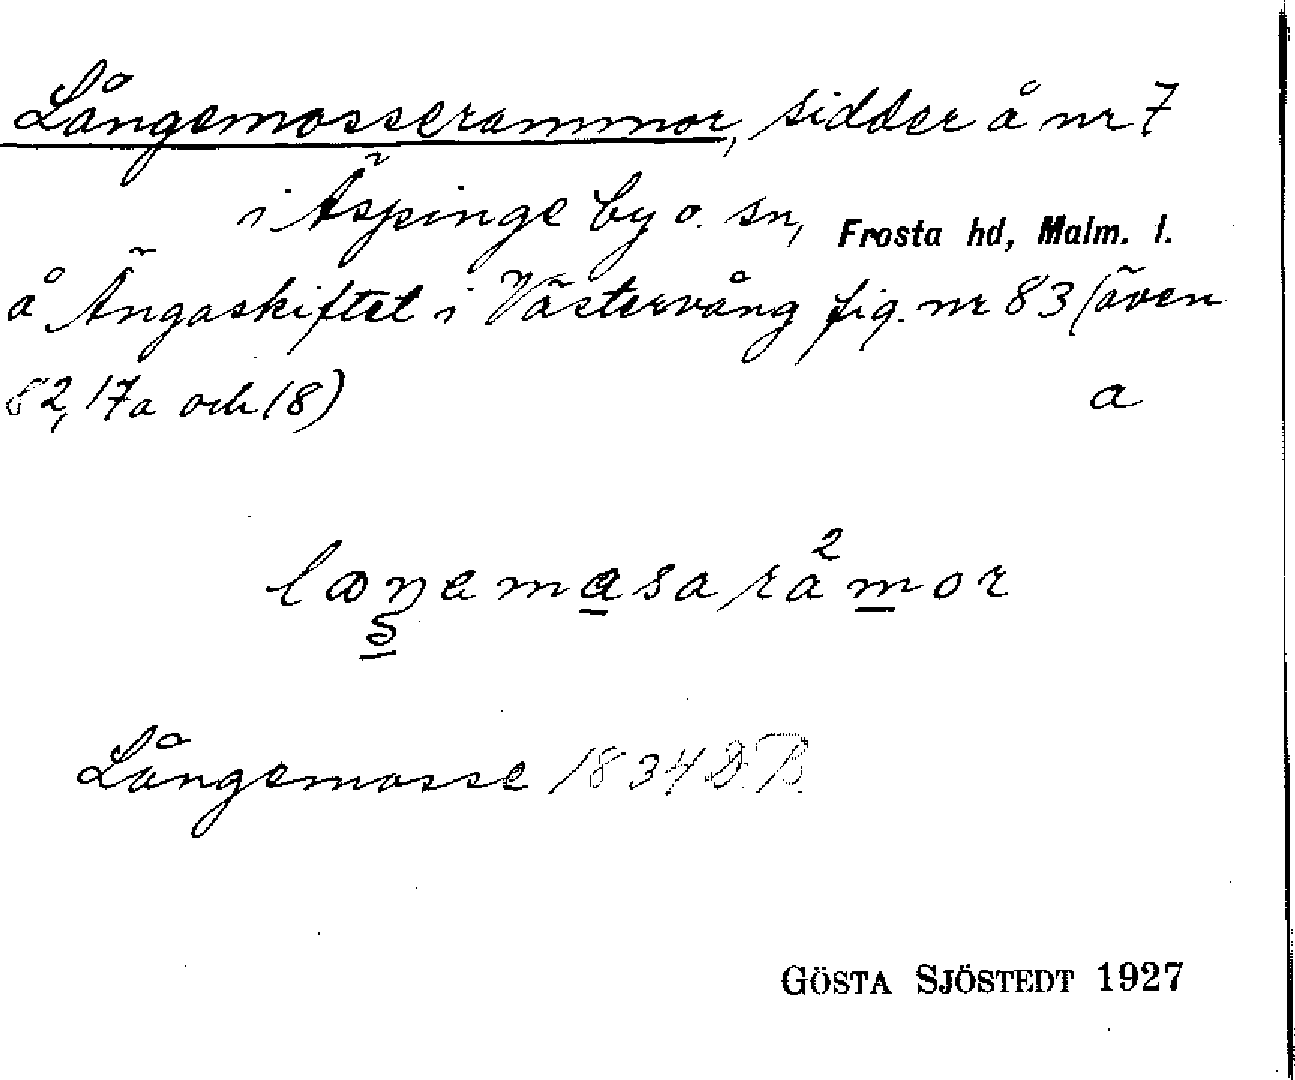 Långemosserammor, sidder å nr 7
i Äspinge by o. sn, Frosta hd, Malm. l.
å Ängaskiftet i Västervång fig. nr 83 (även
82, 17a och 18) a
Långemosse 1834 D.B.
GÖSTA SJÖSTEDT 1927